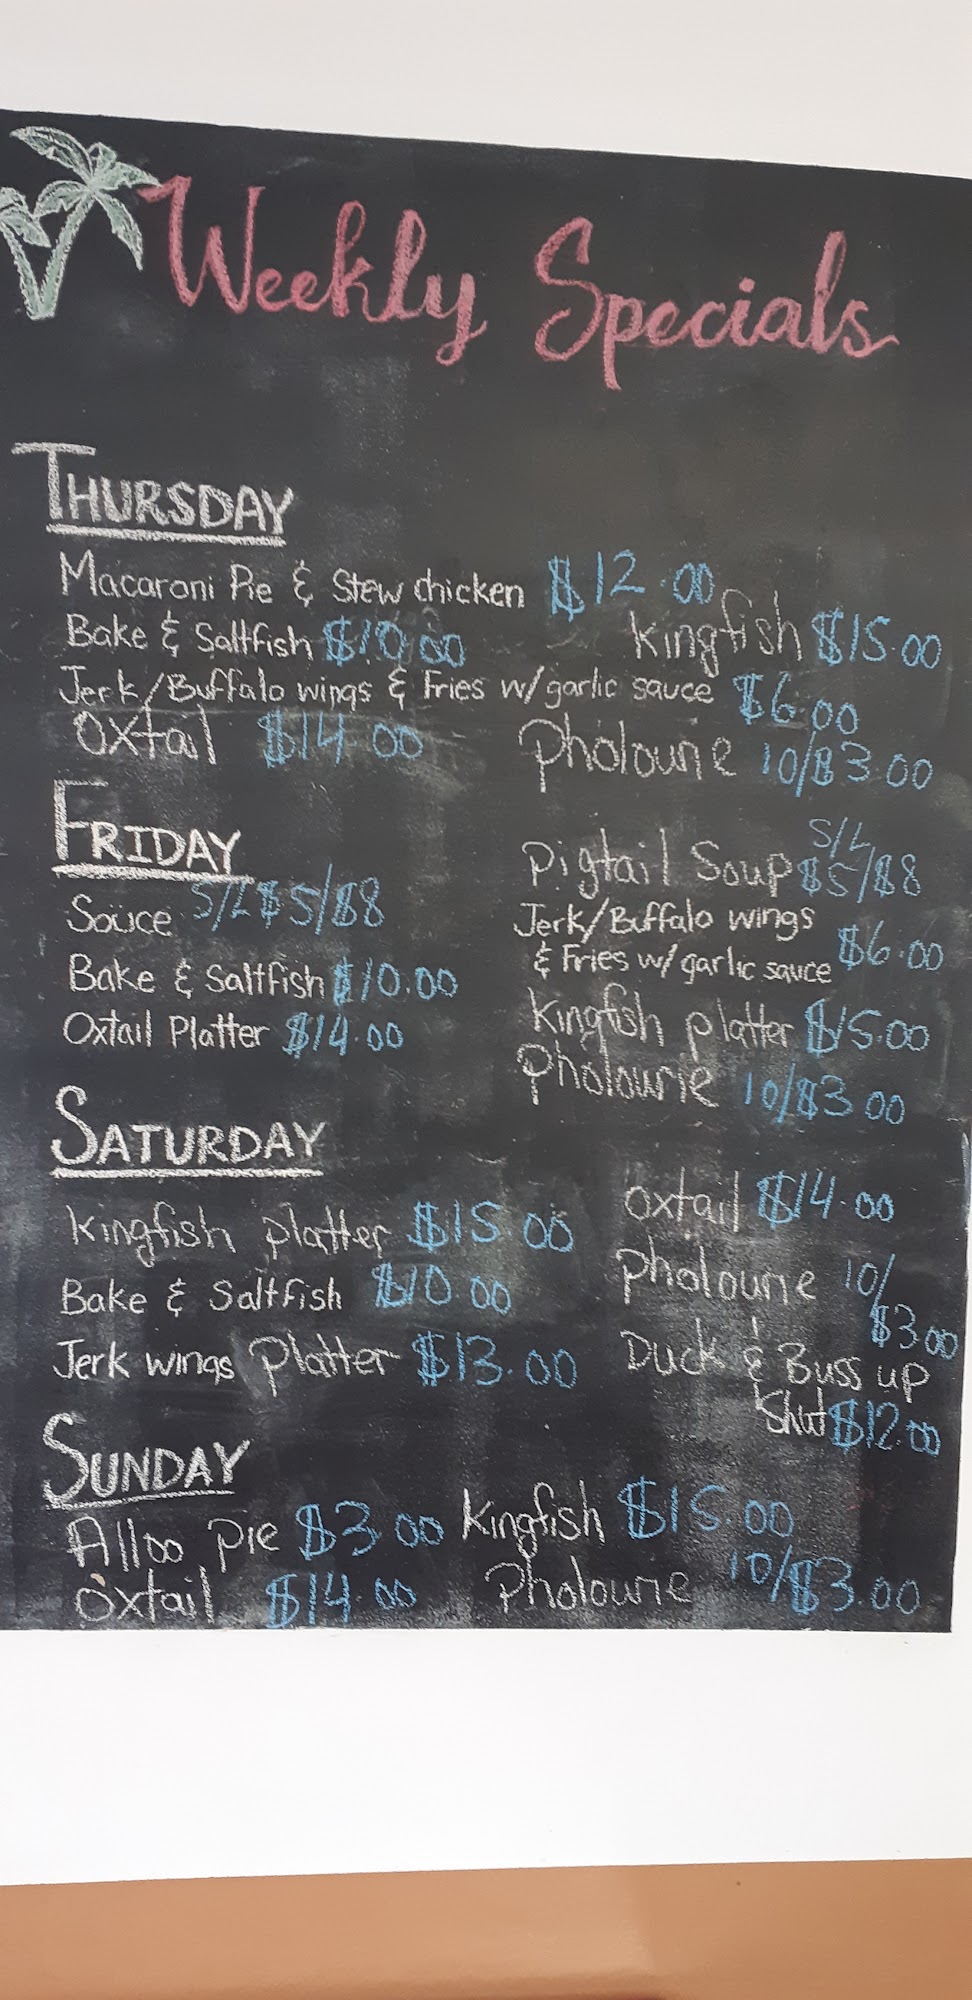 Weekly Specials
THURSDAY
Macaroni Pie & Stew chicken $12.00
Bake & Saltfish $10.00
Kingfish $15.00
Jerk/Buffalo wings & Fries w/garlic sauce $6.00
Oxtail $14.00
Pholourie 10/$3.00
FRIDAY
Souce S/L $5/$8
Bake & Saltfish $10.00
Oxtail Platter $14.00
Pigtail Soup S/L $5/$8
Jerk/Buffalo wings
& Fries w/ garlic sauce $6.00
Kingfish platter $15.00
Pholourie 10/$3.00
SATURDAY
Kingfish platter $15.00
Bake & Saltfish $10.00
Jerk wings Platter $13.00
Oxtail $14.00
Pholourie 10/
$3.00
Duck & Buss up
Shut $12.00
SUNDAY
Alloo pie $3.00
Kingfish $15.00
Oxtail $14.00
Pholourie 10/$3.00